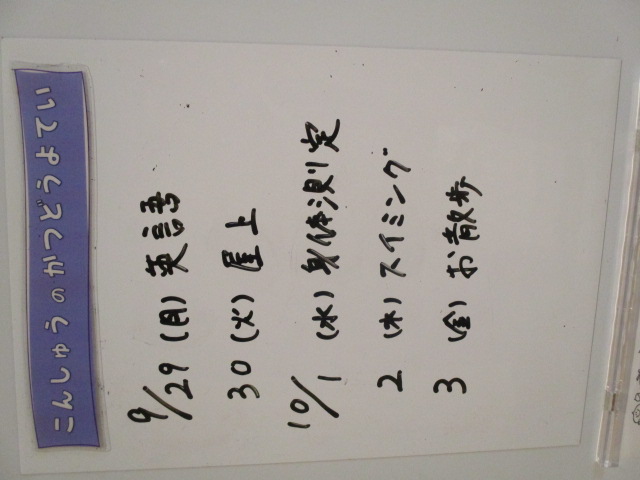 こんしゅうのかつどうよてい
9/29(月)英語
30(火)屋上
10/1(水)身体測定
2(木)スイミング
3(金)お散歩